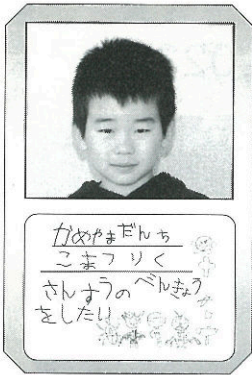 かめやまだんち
こまつりく
さんすうのべんきょう
をしたい